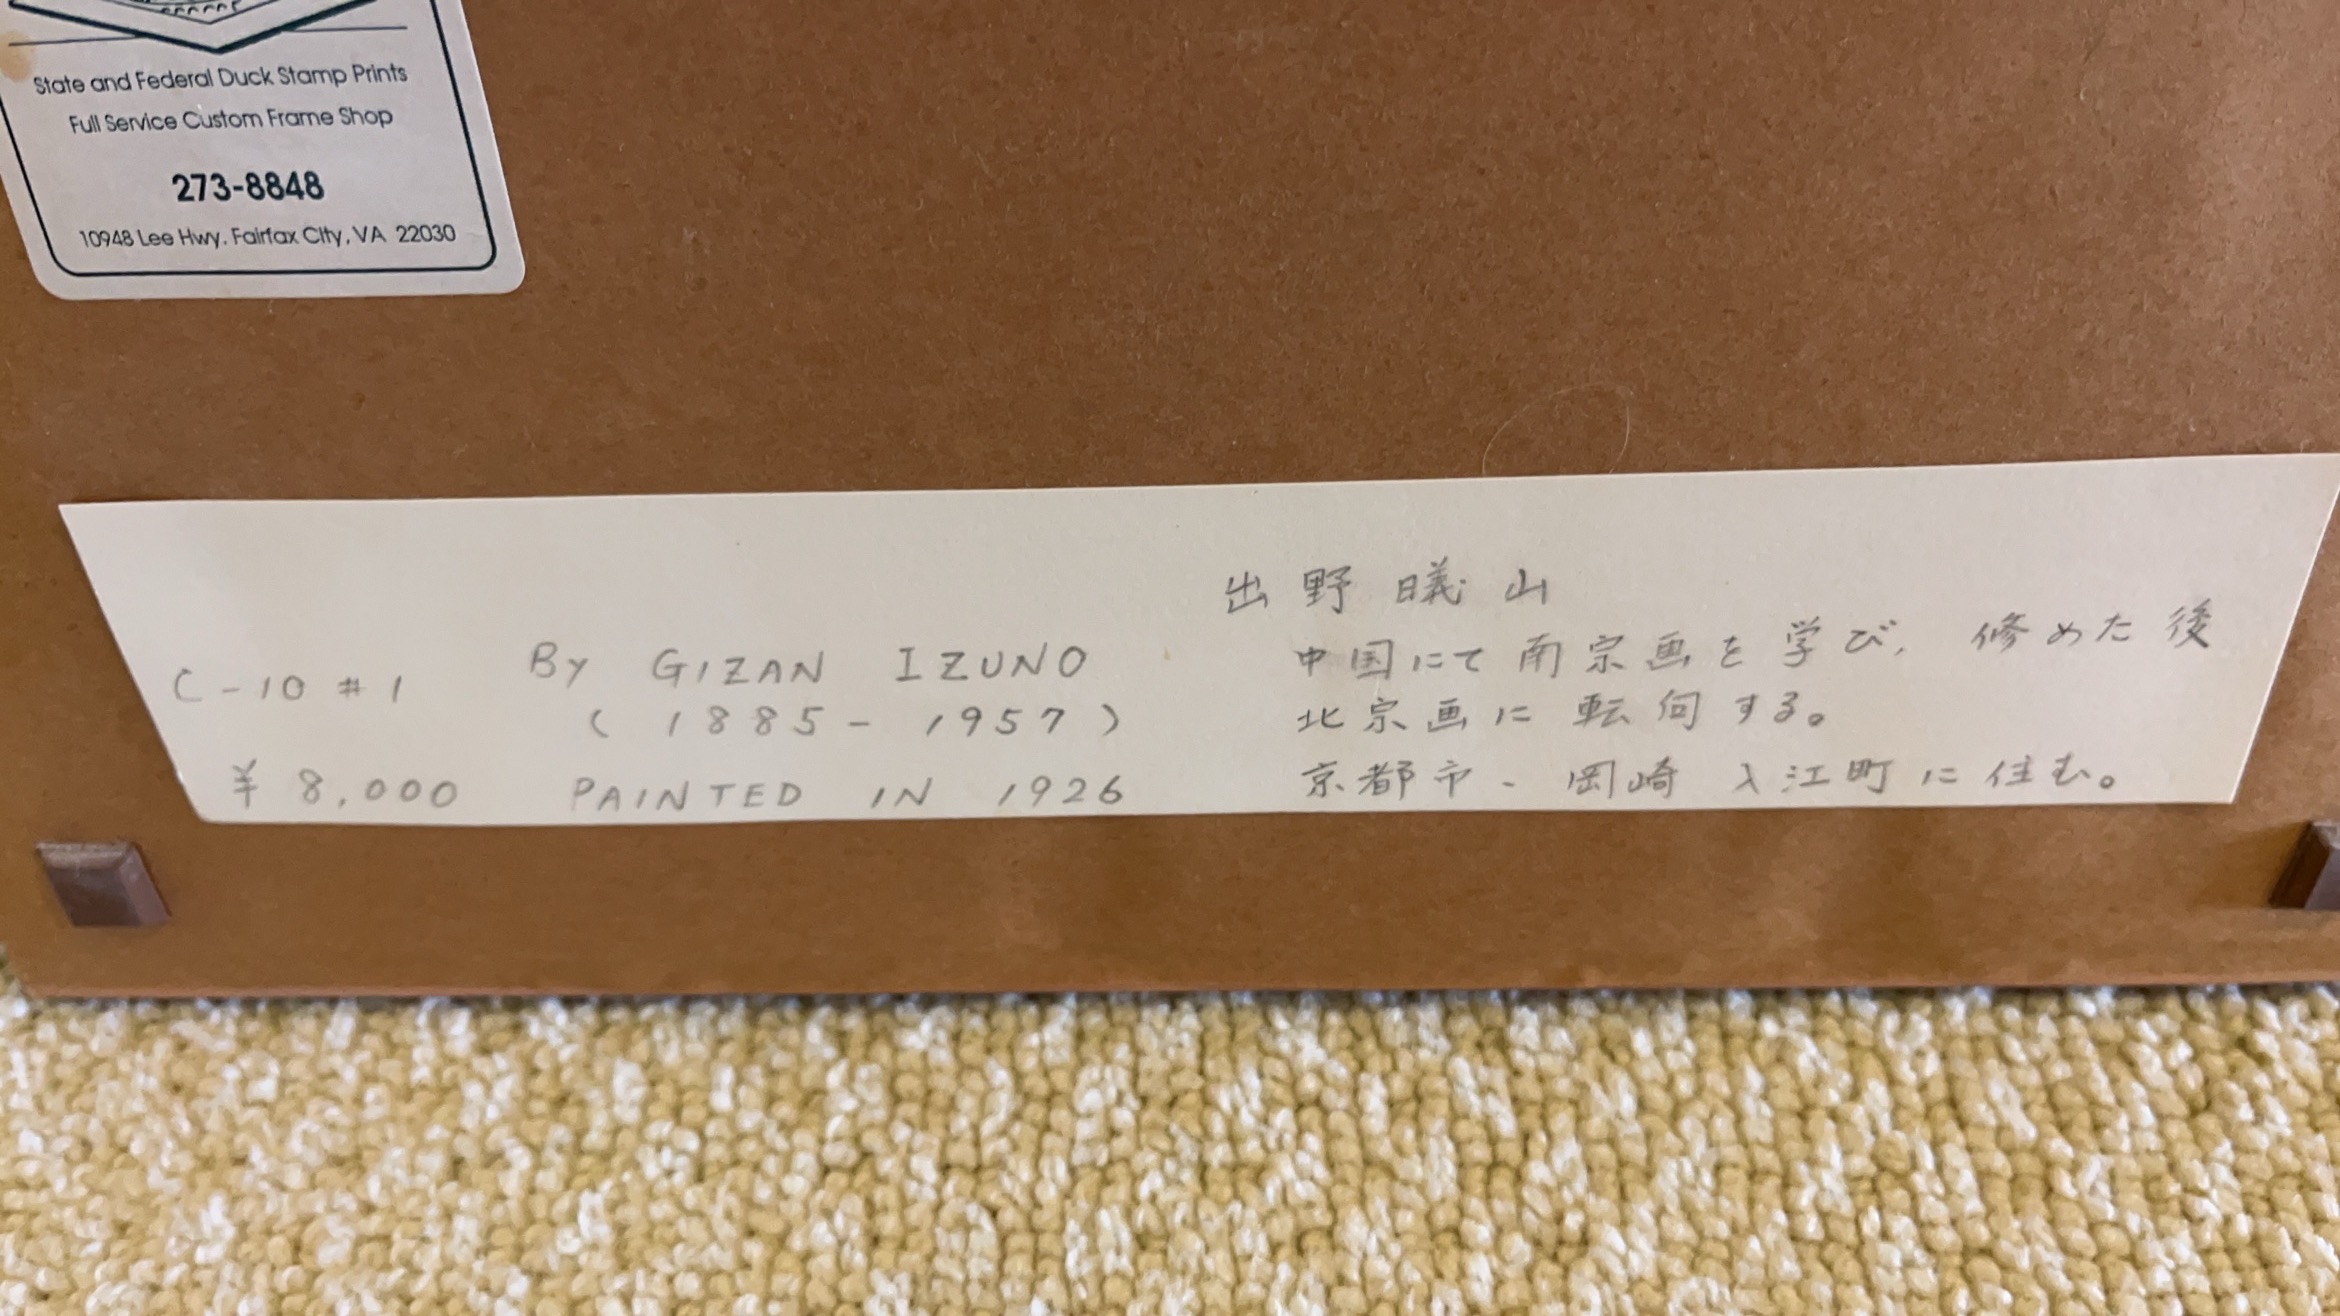 State and Federal Duck Stamp Prints
Full Service Custom Frame Shop
273-8848
10948 Lee Hwy. Fairfax City, VA 22030
C-10 #1
¥ 8,000
By GIZAN IZUNO
( 1885 - 1957 )
PAINTED IN 1926
出野曦山
中国にて南宗画を学び、修めた後
北宗画に転向する。
京都市、岡崎入江町に住む。